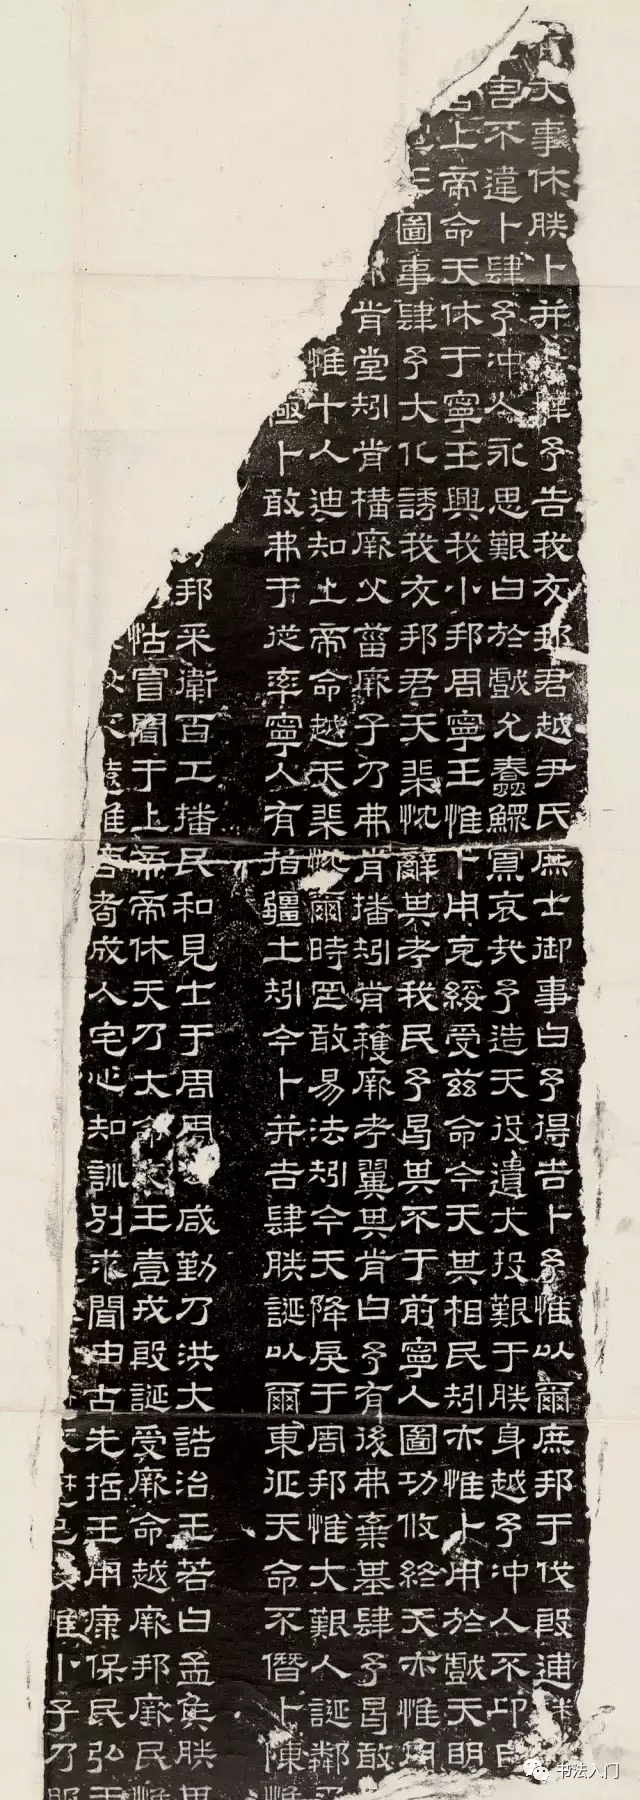 大事休朕卜并予告我友邦君越尹氏庶士御事曰予得吉卜予惟以爾庶邦于伐殷逋
害不違卜肆予沖人永思艱曰於戲允蠢鰥寡哀哉予造天役遺大投艱于朕身越予沖人不卬自
上帝命天休于寧王興我小邦周寧王惟卜用克綏受茲命今天其相民矧亦惟卜用於戲天明
圖事肆予大化誘我友邦君天棐忱辭其考我民予曷其不于前寧人圖功攸終天亦惟用
肯堂矧肯構厥父菑厥子乃弗肯播矧肯穫厥考翼其肯曰予有後弗棄基肆予曷敢
惟十人迪知上帝命越天棐忱爾時罔敢易法矧今天降戾于周邦惟大艱人誕鄰
極卜敢弗于從率寧人有指疆土矧今卜并吉肆朕誕以爾東征天命不僭卜陳惟
邦采衛百工播民和見士于周周咸勤乃洪大誥治王若曰孟侯朕其
怙冒聞于上帝帝休天乃大命文王壹戎殷誕受厥命越厥邦厥民惟
遠惟耇成人宅心知訓別求聞由古先哲王用康保民弘于
惟小子乃服
书法入门